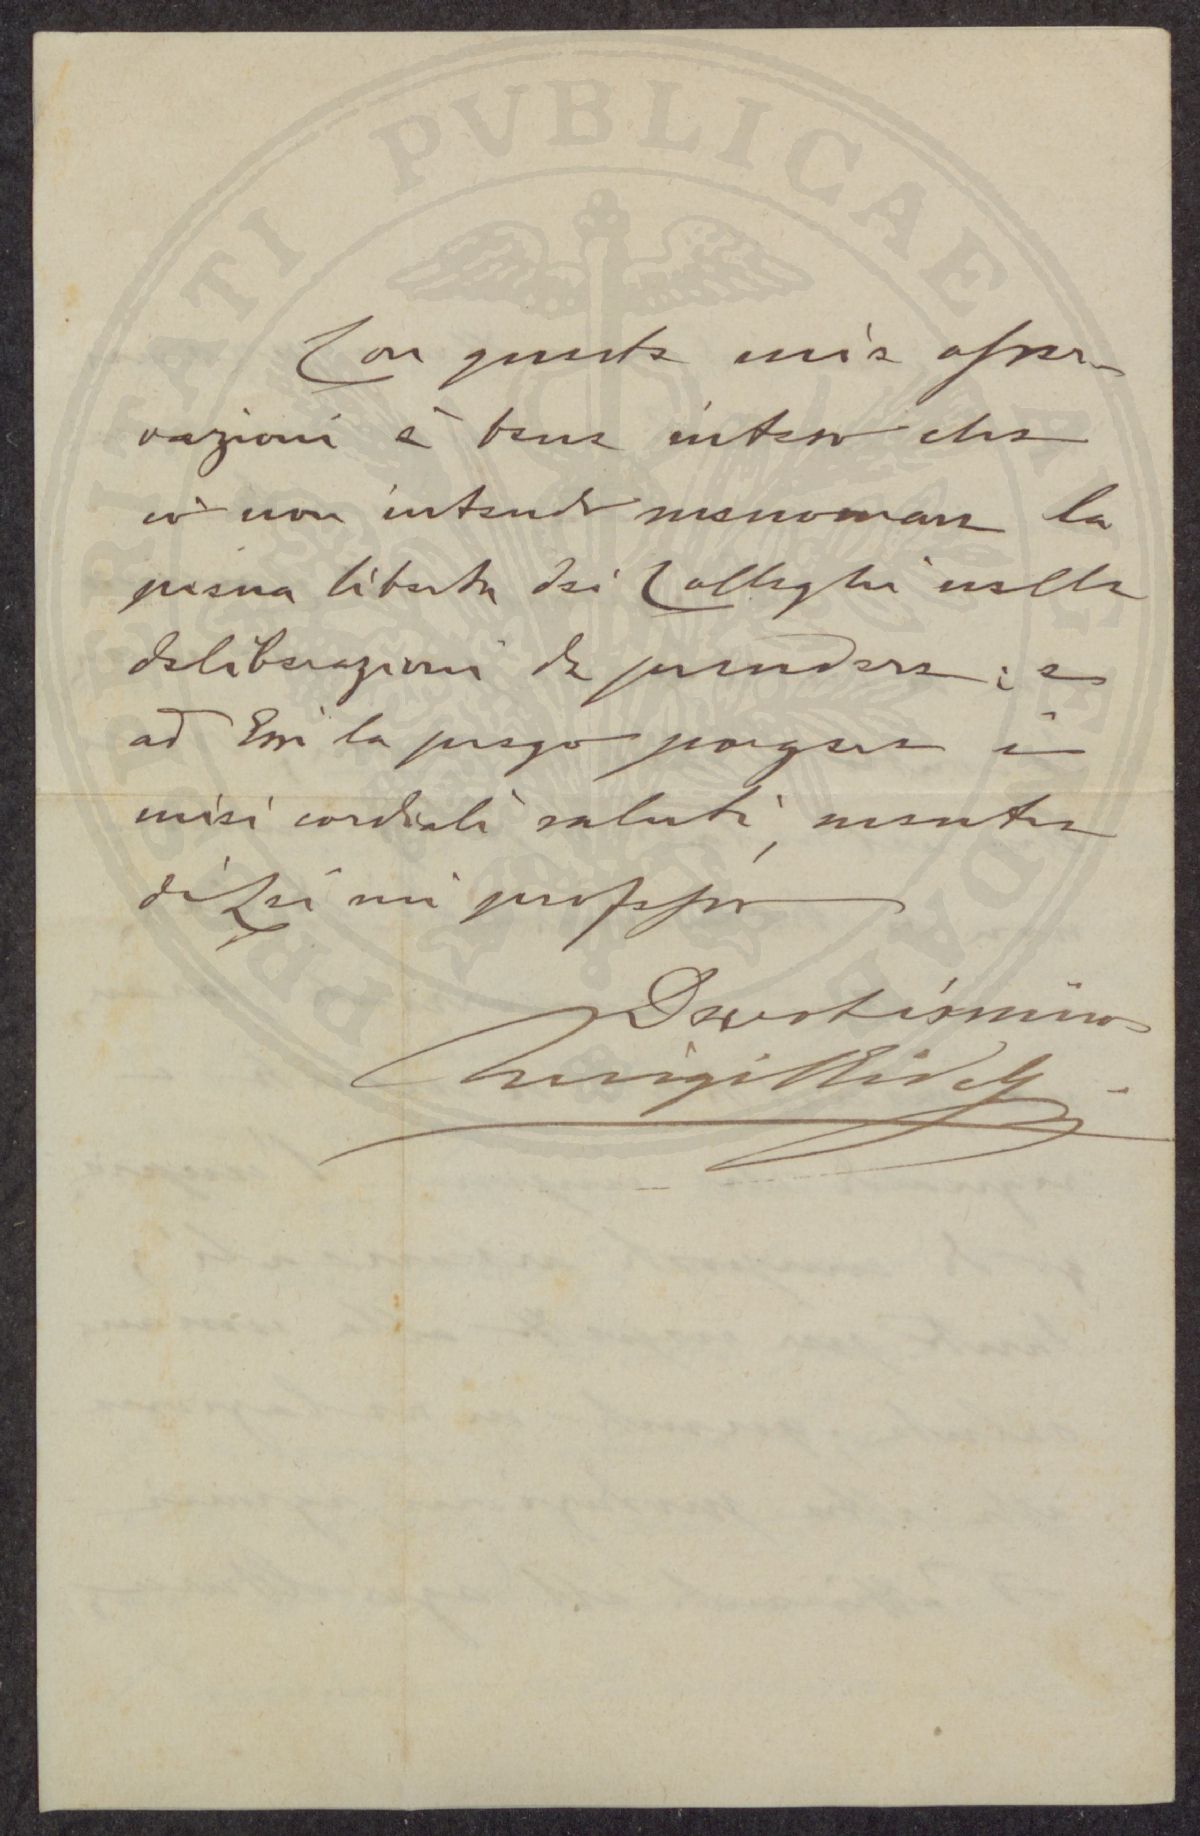 PROSPERITATI PVBLICAE AVGENDAE
Con queste mie osser-
vazioni è bene inteso che
io non intendo menomare la
piena libertà dei Colleghi nelle
deliberazioni da prendere; e
ad Essi la prego porgere i
miei cordiali saluti, mentre
di Lei mi professo
Devotissimo
Luigi Ridolfi